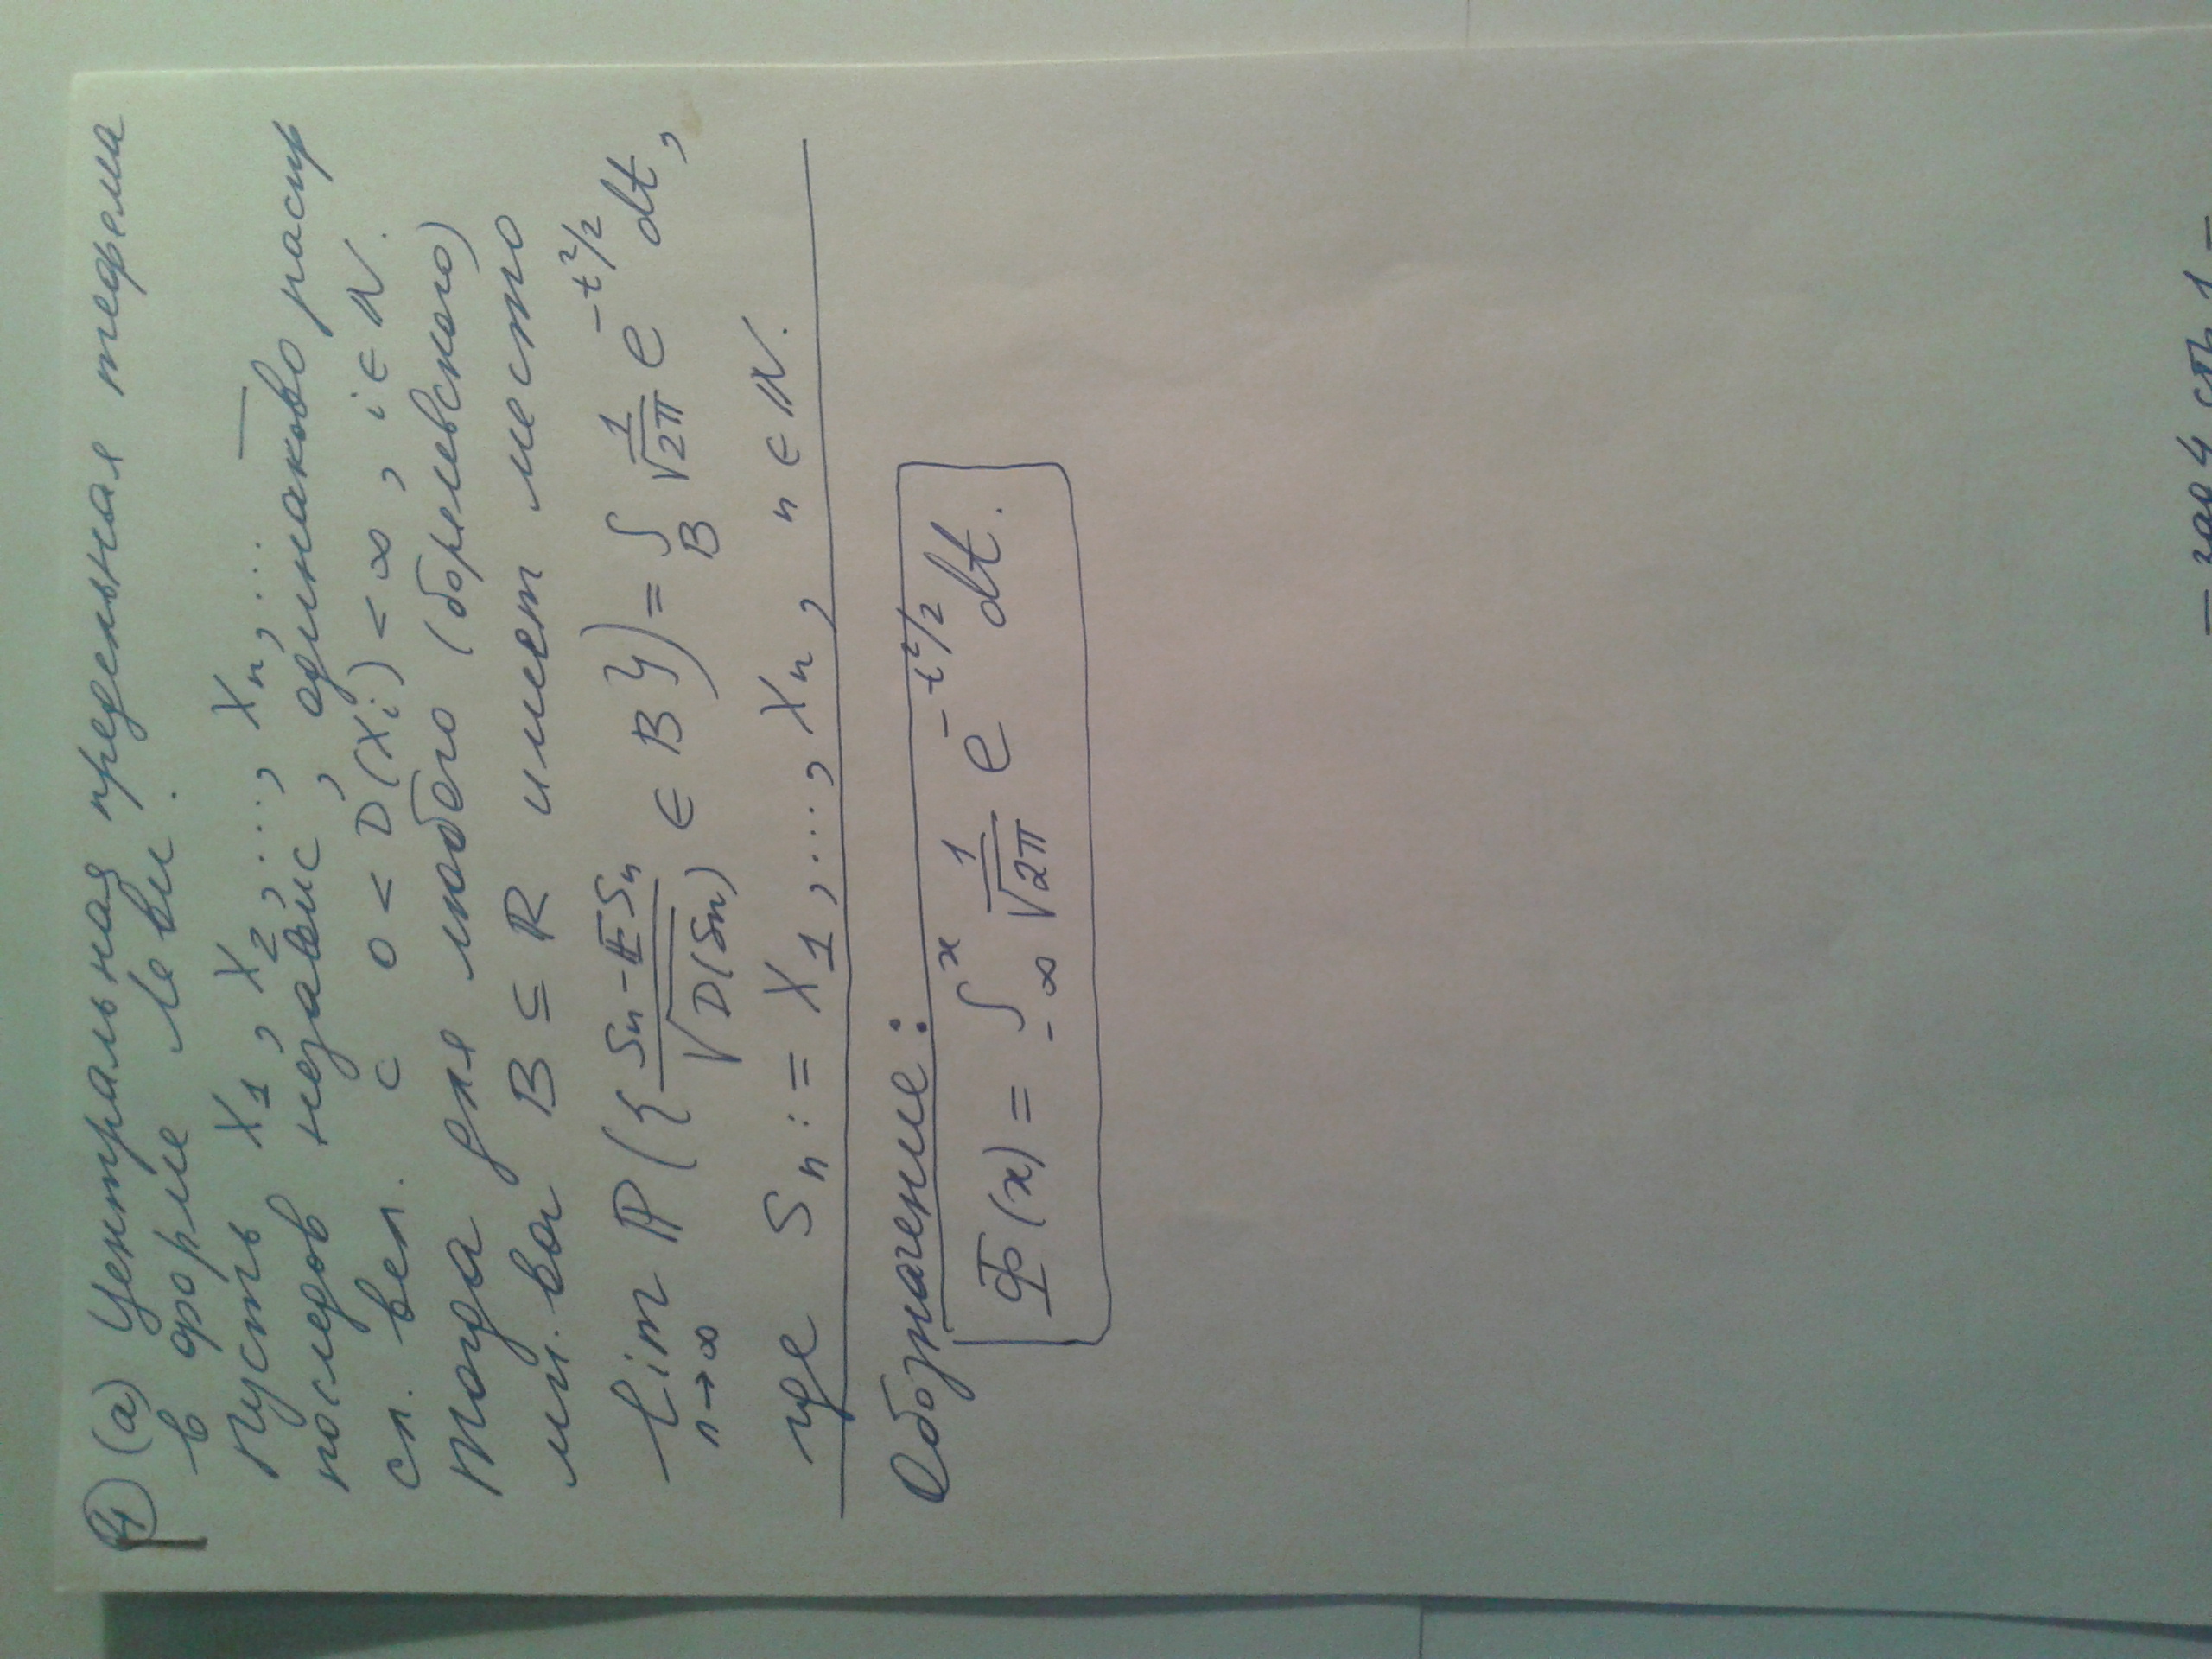 ④ (а) Центральная предельная теорема
в форме Леви.
Пусть X₁, X₂, ..., Xₙ, ... —
последов независ, одинаково распр
сл. вел. с 0 < D(Xᵢ) < ∞, i ∈ ℕ.
Тогда для любого (борелевского)
мн.ва B ⊆ ℝ имеет место
lim_{n→∞} ℙ({(Sₙ - 𝔼Sₙ)/√D(Sₙ) ∈ B}) = ∫_B 1/√2π e^{-t²/2} dt,
где Sₙ := X₁, ..., Xₙ, n ∈ ℕ.
Обозначение:
Φ(x) = ∫_{-∞}^{x} 1/√2π e^{-t²/2} dt.
— зад 4 стр 1 —